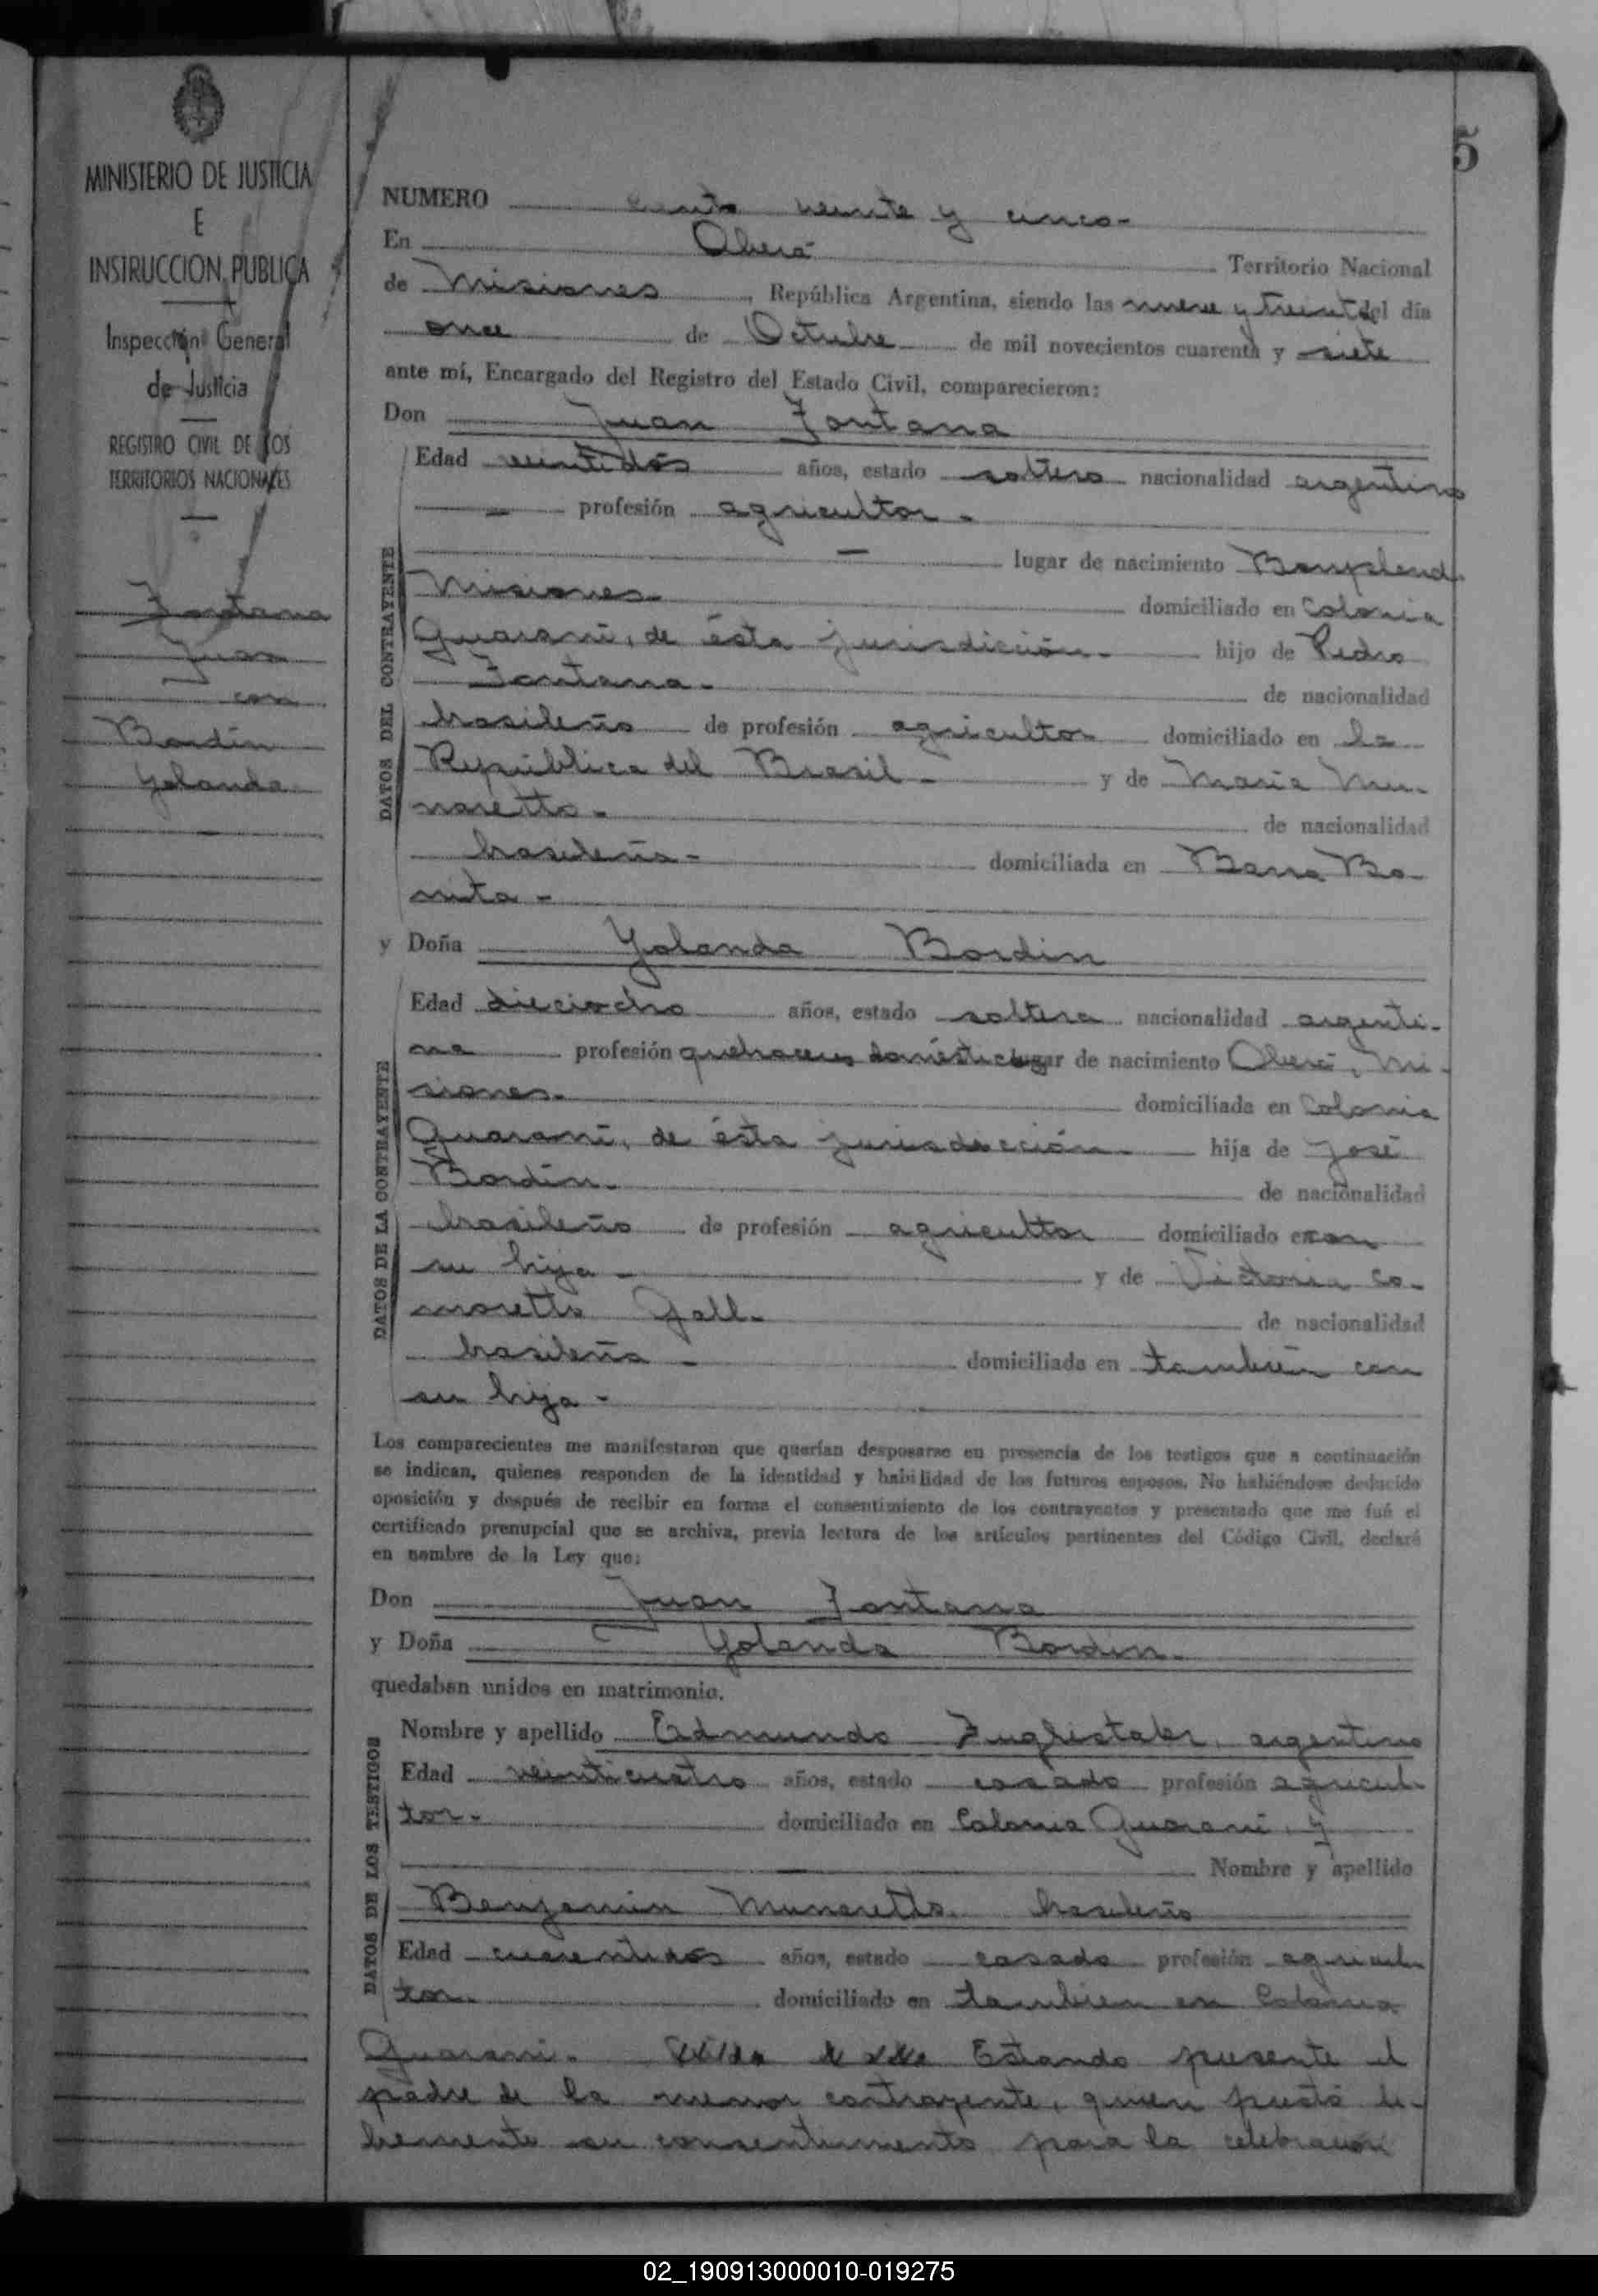 MINISTERIO DE JUSTICIA
E
INSTRUCCION PUBLICA
Inspección General
de Justicia
REGISTRO CIVIL DE LOS
TERRITORIOS NACIONALES
Fontana
Juan
con
Bordin
Yolanda
5
NUMERO ciento veinte y cinco-
En Oberá Territorio Nacional
de Misiones, República Argentina, siendo las nueve y treinta del día
once de Octubre de mil novecientos cuarenta y siete
ante mí, Encargado del Registro del Estado Civil, comparecieron:
Don Juan Fontana
DATOS DEL CONTRAYENTE
Edad veintidós años, estado soltero nacionalidad argentino
- profesión agricultor-
- lugar de nacimiento Bompland
Misiones- domiciliado en Colonia
Guaraní, de ésta jurisdición- hijo de Pedro
Fontana- de nacionalidad
brasileño de profesión agricultor domiciliado en la
República del Brasil- y de Maria Mu-
naretto- de nacionalidad
brasileña- domiciliada en Barra Bo-
nita-
y Doña Yolanda Bordin
DATOS DE LA CONTRAYENTE
Edad dieciocho años, estado soltera nacionalidad argenti-
na profesión quehaceres domésticos lugar de nacimiento Oberá, Mi-
siones- domiciliada en Colonia
Guaraní, de ésta jurisdicción- hija de José
Bordin- de nacionalidad
brasileño de profesión agricultor domiciliado en con
su hija- y de Victoria Co-
moretto Gall- de nacionalidad
brasileña- domiciliada en también con
su hija-
Los comparecientes me manifestaron que querían desposarse en presencia de los testigos que a continuación
se indican, quienes responden de la identidad y habilidad de los futuros esposos. No habiéndose deducido
oposición y después de recibir en forma el consentimiento de los contrayentes y presentado que me fué el
certificado prenupcial que se archiva, previa lectura de los artículos pertinentes del Código Civil, declaré
en nombre de la Ley que:
Don Juan Fontana
y Doña Yolanda Bordin-
quedaban unidos en matrimonio.
DATOS DE LOS TESTIGOS
Nombre y apellido Edmundo argentino
Edad veinticuatro años, estado casado profesión agricul-
tor- domiciliado en Colonia Guaraní, y
- Nombre y apellido
Benjamin Munaretto brasileño
Edad cuarentidós años, estado casado profesión agricul-
tor- domiciliado en tambien en Colonia
Guaraní- Estando presente el
padre de la menor contrayente, quien prestó li-
bremente su consentimiento para la celebración
02_190913000010-019275